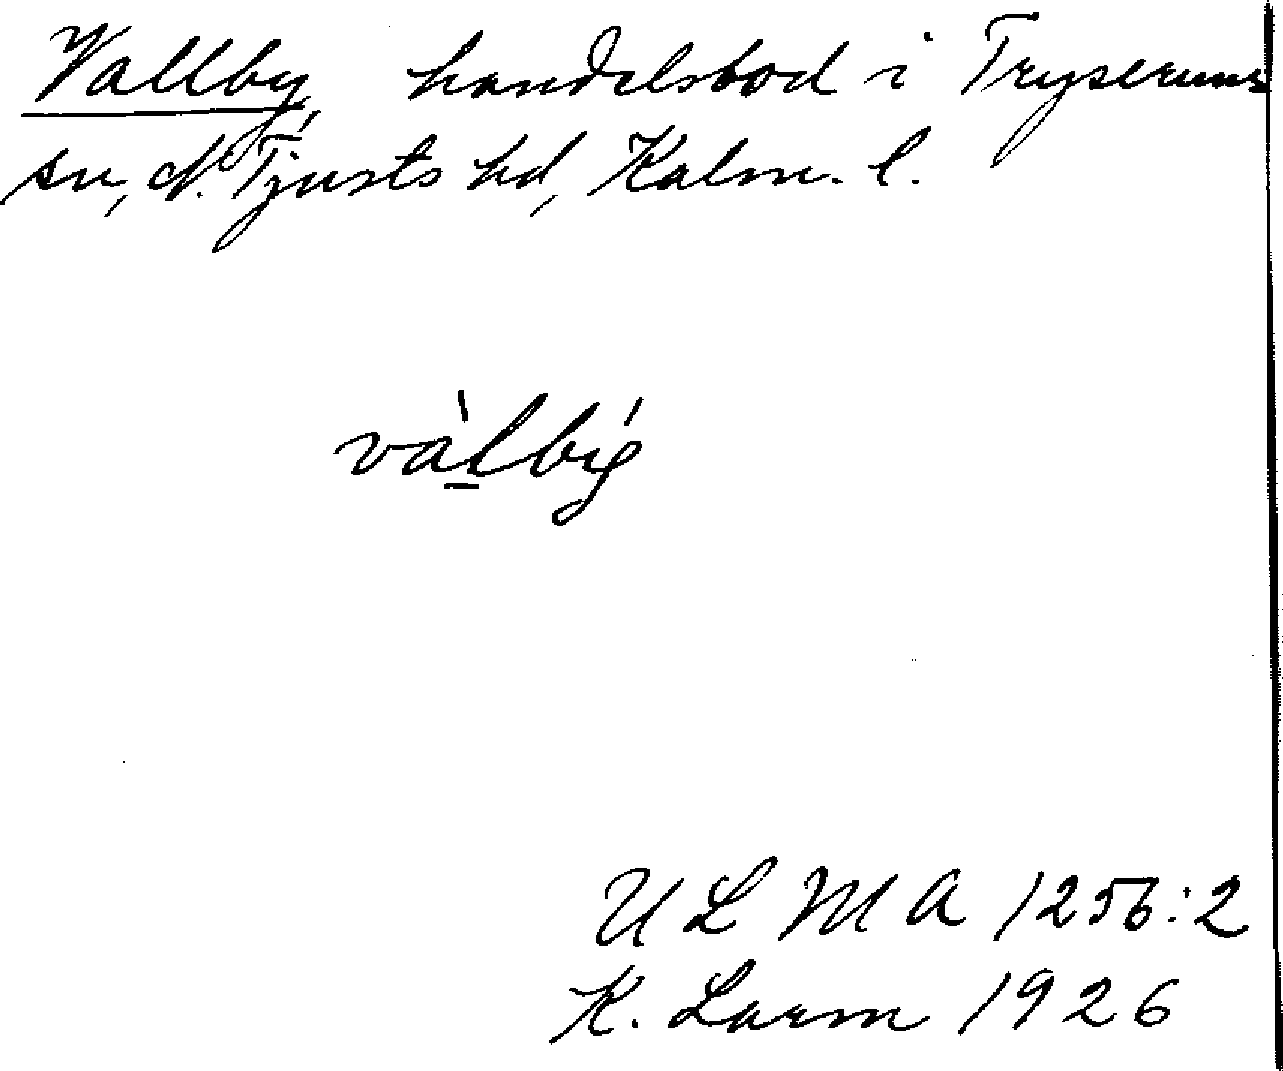 Vallby handelsbod i Tryserums
sn, N. Tjusts hd, Kalm. l.
và̱lbý
ULMA 1256:2
K. Larm 1926